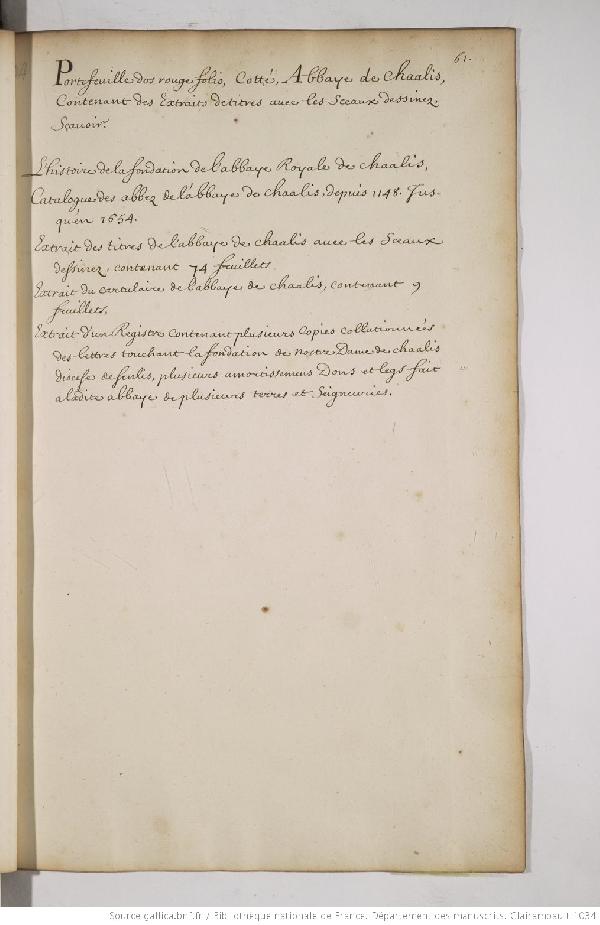 61.
Portefeuille dos rouge folio, Cotté, Abbaye de Chaalis,
Contenant des Extraits de titres avec les Sceaux dessinez.
Sçavoir.
L'histoire de la fondation de l'abbaye Royale de Chaalis,
Catalogue des abbez de l'abbaye de Chaalis, depuis 1148. Jus-
qu'en 1654.
Extrait des titres de l'abbaye de Chaalis avec les Sceaux
dessinez, contenant 74 feuillets.
Extrait du Certulaire de l'abbaye de Chaalis, contenant 9
feuillets.
Extrait d'un Registre contenant plusieurs Copies collationnées
des lettres touchant la fondation de nostre Dame de Chaalis
diocese de senlis, plusieurs amortissemens Dons et legs fait
a ladite abbaye de plusieurs terres et Seigneuries.
Source gallica.bnf.fr / Bibliothèque nationale de France. Département des manuscrits. Clairambault 1034